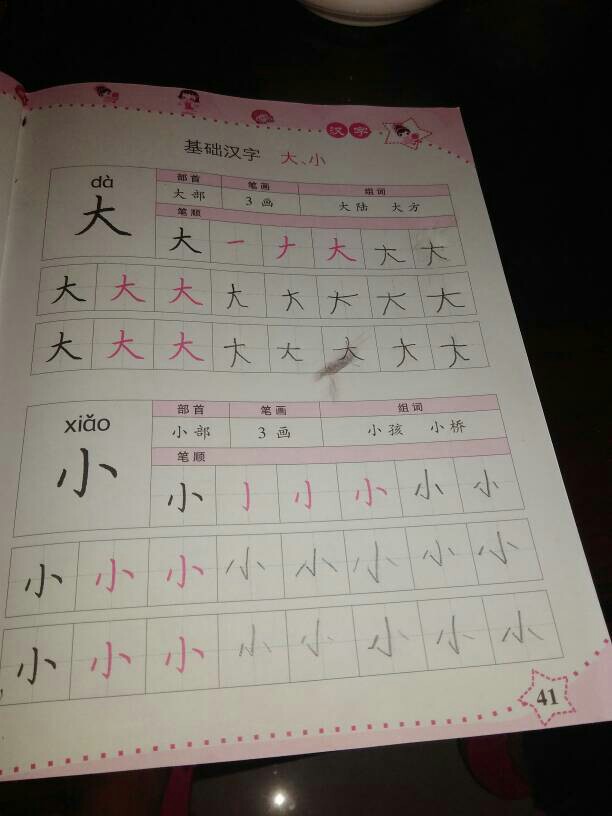 汉字
基础汉字 大、小
dà 部首 笔画 组词
大部 3画 大陆 大方
笔顺
大 大 一 ナ 大 大 大
大 大 大 大 大 大 大 大
大 大 大 大 大 大 大 大
xiǎo 部首 笔画 组词
小部 3画 小孩 小桥
笔顺
小 小 亅 小 小 小
小 小 小 小 小 小 小 小
小 小 小 小 小 小 小 小
41